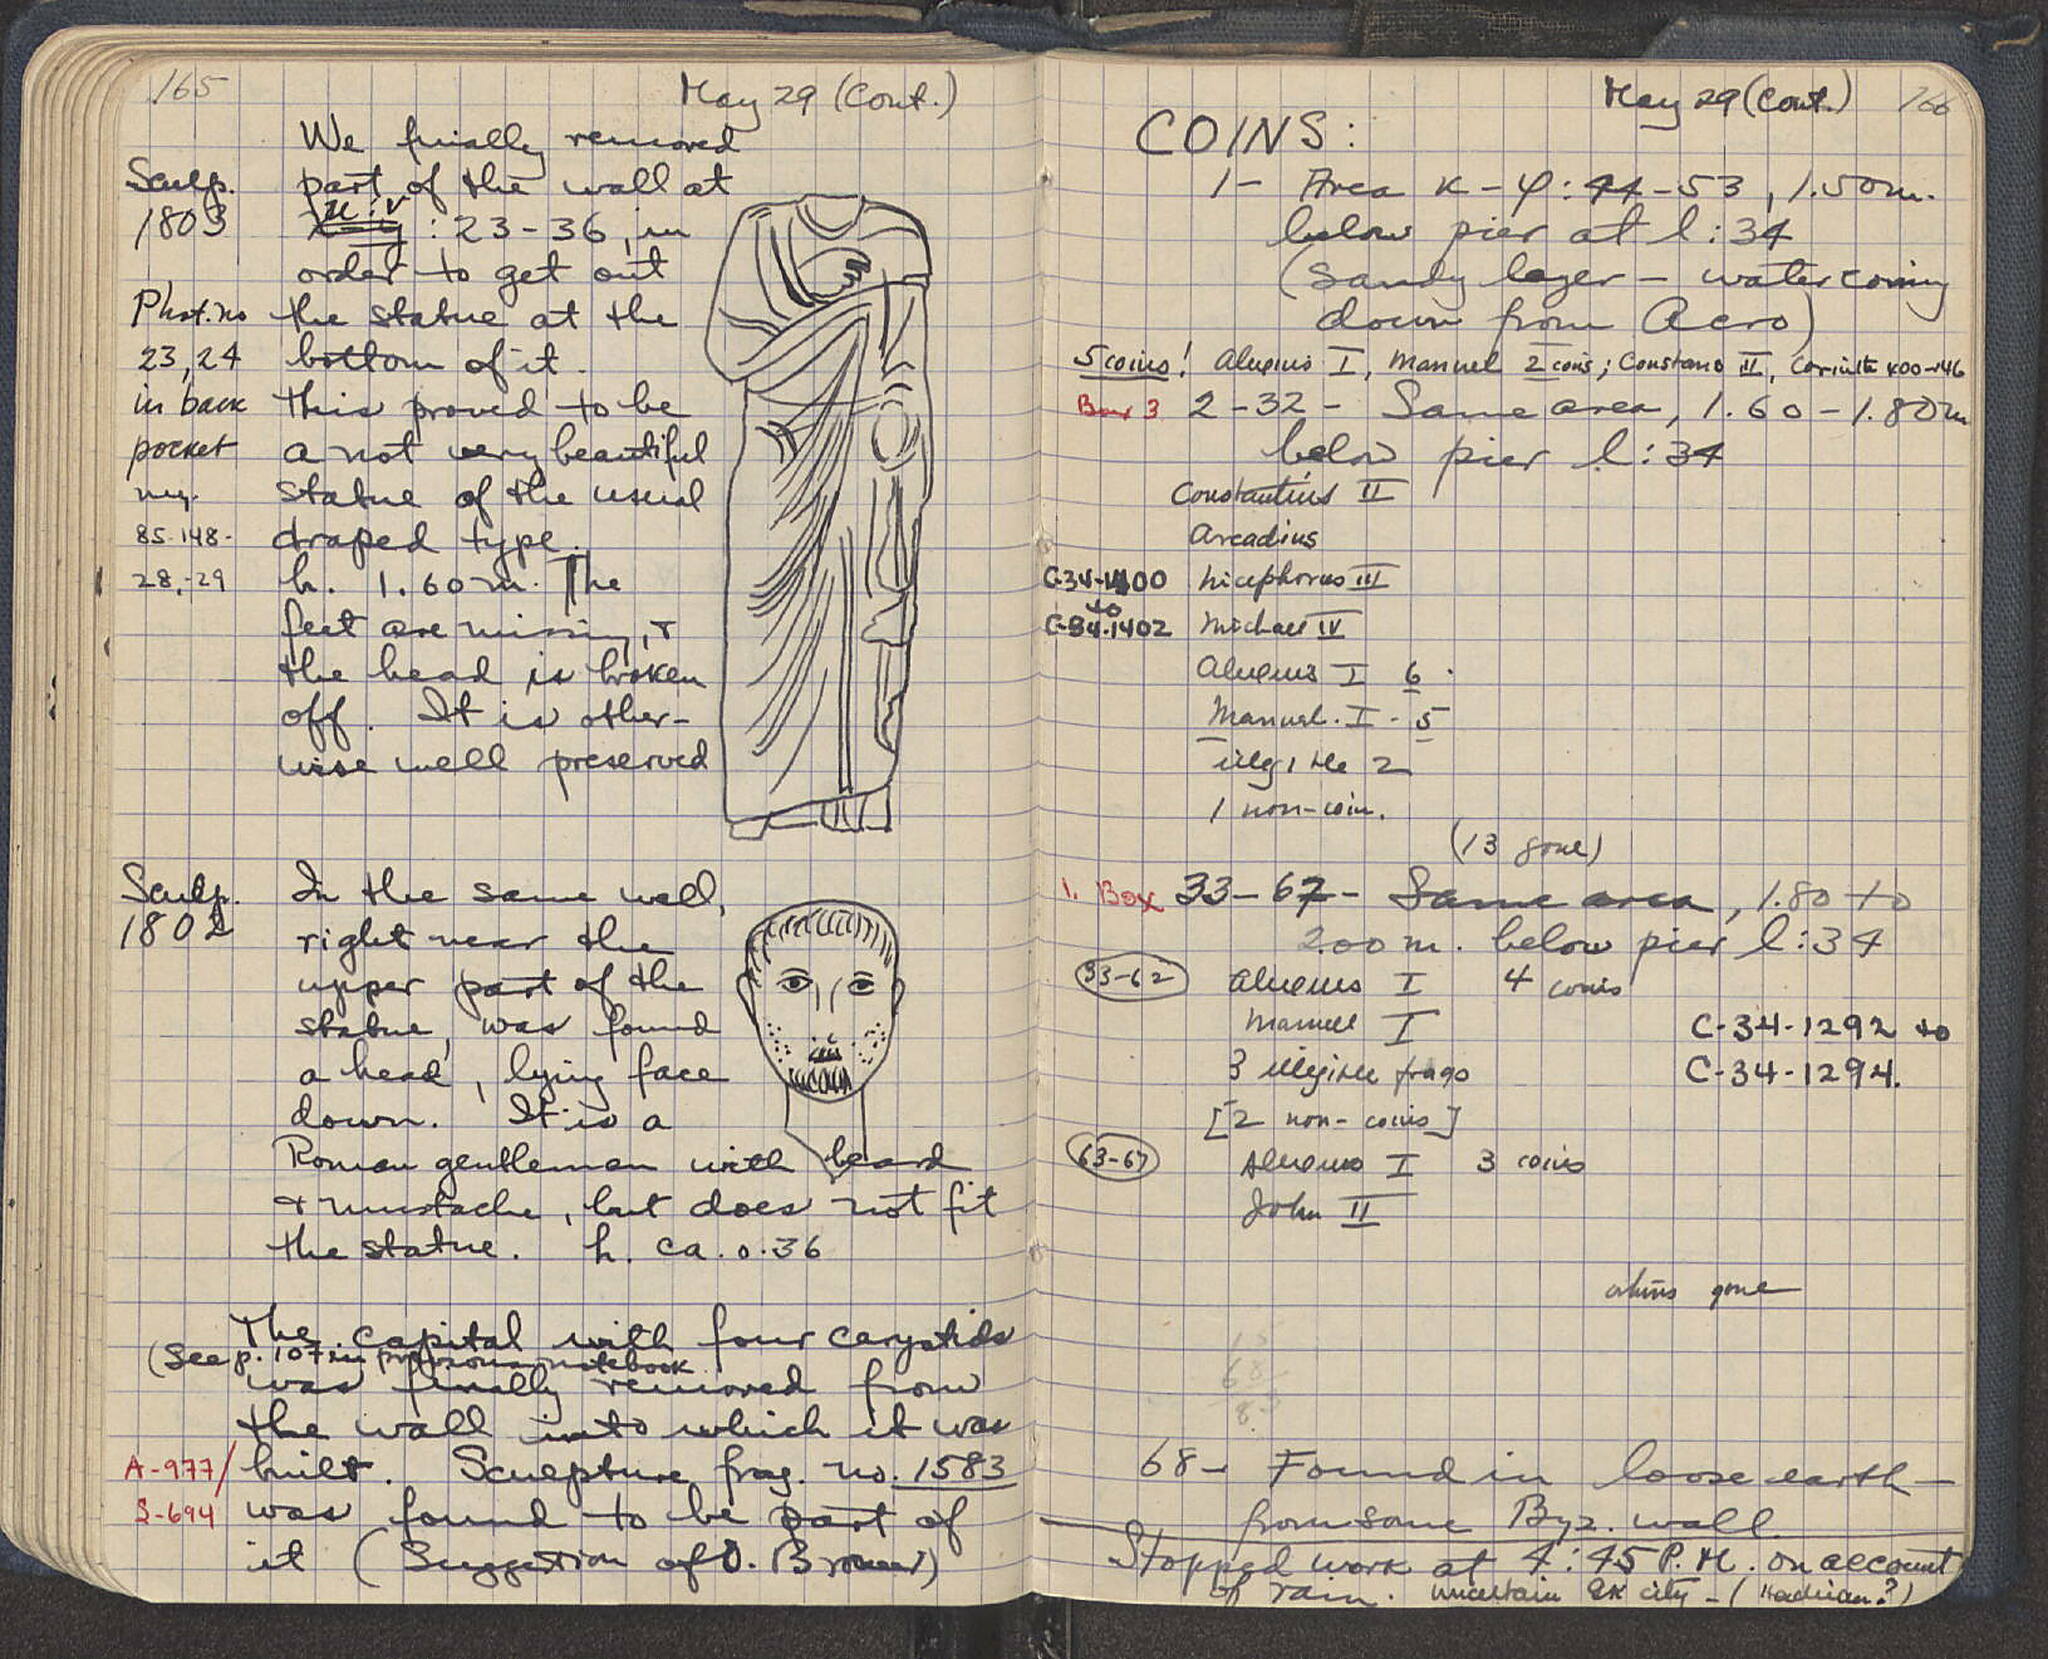 165
May 29 (Cont.)
We finally removed
Sculp. part of the wall at
1803 : 23-36, in
order to get out
Phot. no the statue at the
23, 24 bottom of it.
in back This proved to be
pocket a not very beautiful
neg. statue of the usual
85-148- draped type.
28,-29 h. 1.60 m. The
feet are missing, &
the head is broken
off. It is other-
wise well preserved
Sculp. In the same wall,
1802 right near the
upper part of the
statue, was found
a head, lying face
down. It is a
Roman gentleman with beard
& mustache, but does not fit
the statue. h. ca. 0.36
The capital with four caryatids
(See p. 107 in previous notebook
was finally removed from
the wall into which it was
A-977/ built. Sculpture frag. no. 1583
S-694 was found to be part of
it (Suggestion of O. Broneer)
May 29 (Cont.) 166
COINS:
1- Area K-φ:44-53, 1.50 m.
below pier at l:34
(Sandy layer - water coming
down from Acro)
5 coins! Alexius I, Manuel 2 coins; Constans II, Corinth 400-146
Box 3 2-32- Same area, 1.60-1.80 m
below pier l:34
Constantius II
Arcadius
C-34-1400 Nicephorus III
to
C-34-1402 Michael IV
Alexius I 6
Manuel I - 5
illegible 2
1 non-coin.
(13 gone)
1. Box 33-67- Same area, 1.80 to
2.00 m. below pier l:34
33-62 Alexius I 4 coins
Manuel I C-34-1292 to
3 illegible frags C-34-1294.
[2 non-coins]
63-67 Alexius I 3 coins
John II
others gone
68- Found in loose earth-
from some Byz. wall.
Stopped work at 4:45 P.M. on account
of rain. uncertain Gk city - (Hadrian?)